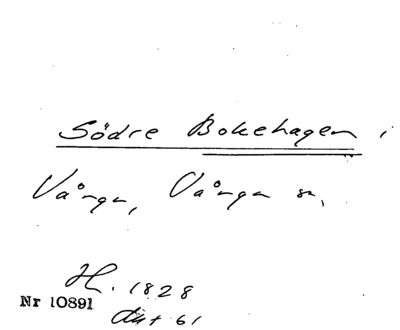 Södre Bokehagen i
Vånga, Vånga sn,
H. 1828
Nr 10891
61